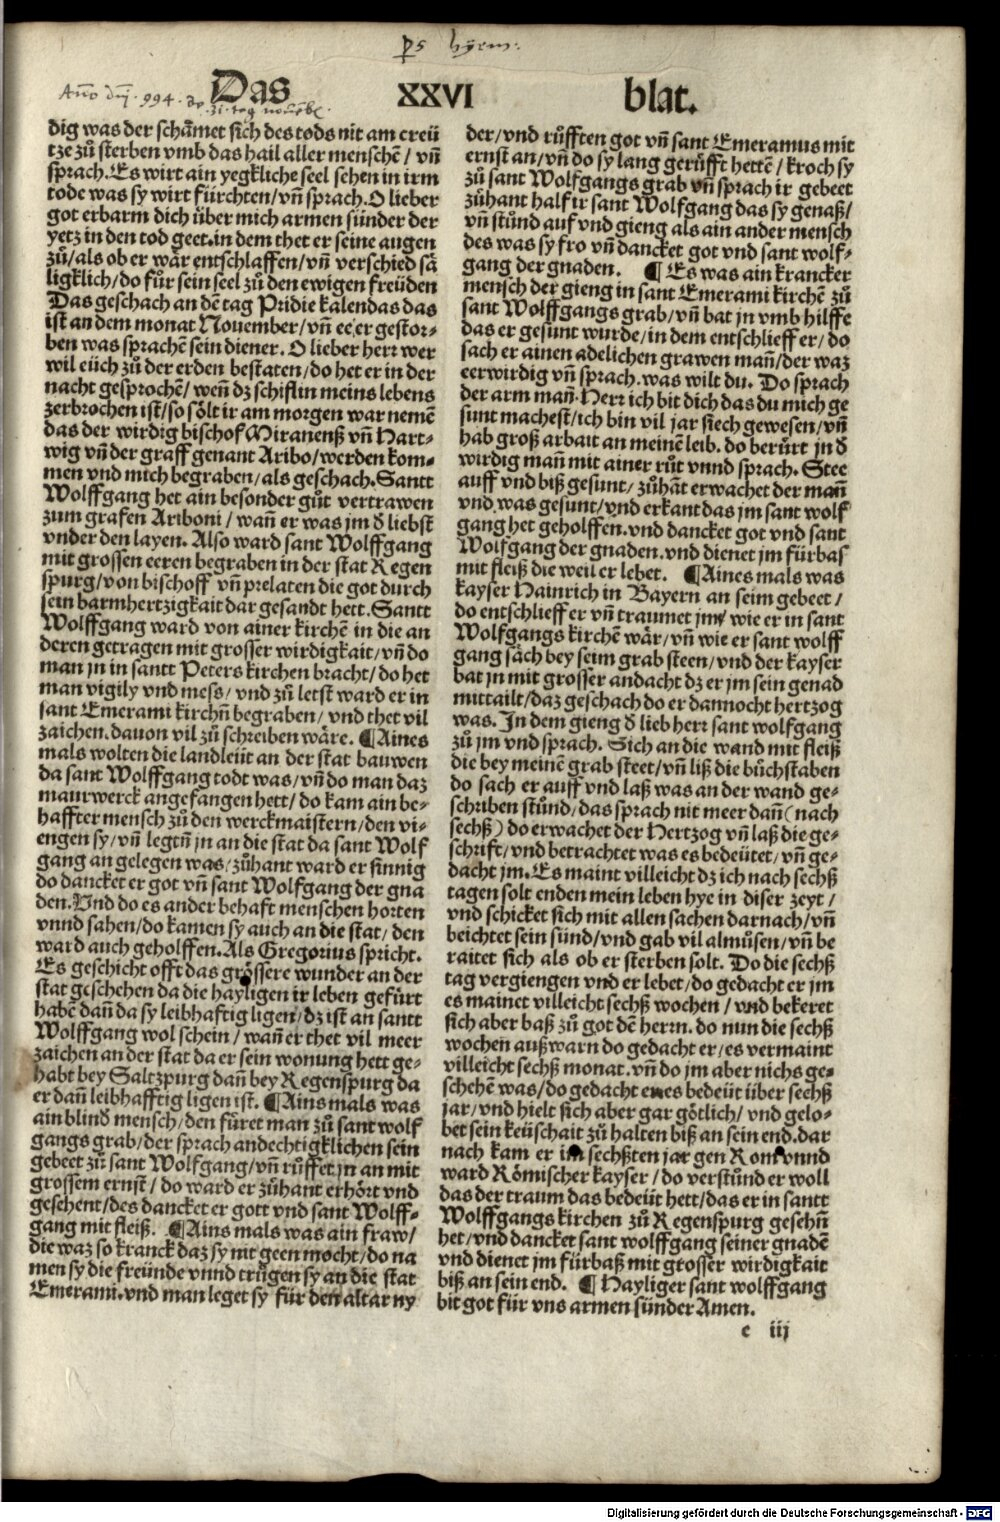 ps hyem:
Das XXVI blat.
Año dnj. 994. 31. tag
dig was der schamet sich des tods nit am creü
tze zů sterben vmb das hail aller menschē / vñ
sprach. Es wirt ain yegkliche seel sehen in irm
tode was sy wirt fürchten/vñ sprach. O lieber
got erbarm dich über mich armen sünder der
yetz in den tod geet. in dem thet er seine augen
zů/als ob er wår entschlaffen/vñ verschied så
ligklich/do für sein seel zů den ewigen freüden
Das geschach an dē tag Pridie kalendas das
ist an dem monat Nouember/vñ ee er gestor-
ben was sprachē sein diener. O lieber herr wer
wil eüch zů der erden bestaten/do het er in der
nacht gesprochē/ weñ dz schiflin meins lebens
zerbrochen ist/so sölt ir am morgen war nemē
das der wirdig bischof Miranenß vñ Hart-
wig vñ der graff genant Aribo/werden kom-
men vnd mich begraben/als geschach. Santt
Wolffgang het ain besonder gůt vertrawen
zum grafen Ariboni / wañ er was jm d̕ liebst
vnder den layen. Also ward sant Wolffgang
mit grossen eeren begraben in der stat Regen
spurg/von bischoff vñ prelaten die got durch
sein barmhertzigkait dar gesandt hett. Santt
Wolffgang ward von ainer kirchē in die an
deren getragen mit grosser wirdigkait/vñ do
man jn in santt Peters kirchen bracht/do het
man vigily vnd mess/ vnd zů letst ward er in
sant Emerami kirchñ begraben/ vnd thet vil
zaichen. dauon vil zů schreiben wåre. ¶Aines
mals wolten die landleüt an der stat bauwen
da sant Wolffgang todt was/vñ do man daz
maurwerck angefangen hett/do kam ain be-
haffter mensch zů den werckmaistern/den vi-
engen sy/vñ legtñ jn an die stat da sant Wolf
gang an gelegen was/zůhant ward er sinnig
do dancket er got vñ sant Wolfgang der gna
den. Vnd do es ander behaft menschen horten
vnnd sahen/do kamen sy auch an die stat/den
ward auch geholffen. Als Gregorius spricht.
Es geschicht offt das grössere wunder an der
stat geschehen da die hayligen ir leben gefürt
habē dañ da sy leibhaftig ligen/dz ist an santt
Wolffgang wol schein / wañ er thet vil meer
zaichen an der stat da er sein wonung hett ge-
habt bey Saltzpurg dañ bey Regenspurg da
er dañ leibhafftig ligen ist. ¶Ains mals was
ain blind̕ mensch/den füret man zů sant wolf
gangs grab/der sprach andechtigklichen sein
gebeet zů sant Wolfgang/vñ růffet jn an mit
grossem ernst/ do ward er zůhant erhört vnd
geschent/des dancket er gott vnd sant Wolff-
gang mit fleiß. ¶Ains mals was ain fraw/
die waz so kranck daz sy nit geen mocht/do na
men sy die freünde vnnd trůgen sy an die stat
Emerami. vnd man leget sy für den altar ny
der/vnd růfften got vñ sant Emeramus mit
ernst an/vñ do sy lang gerůfft hettē/kroch sy
zů sant Wolfgangs grab vñ sprach ir gebeet
zůhant half ir sant Wolfgang das sy genaß/
vñ stůnd auf vnd gieng als ain ander mensch
des was sy fro vñ dancket got vnd sant wolf-
gang der gnaden. ¶ Es was ain krancker
mensch der gieng in sant Emerami kirchē zů
sant Wolffgangs grab/vñ bat jn vmb hilffe
das er gesunt wurde/in dem entschlieff er/do
sach er ainen adelichen grawen mañ/der waz
eerwirdig vñ sprach. was wilt du. Do sprach
der arm mañ. Herr ich bit dich das du mich ge
sunt machest/ich bin vil jar siech gewesen/vñ
hab groß arbait an meinē leib. do berürt jn d̕
wirdig mañ mit ainer růt vnnd sprach. Stee
auff vnd biß gesunt/ zůhāt erwachet der mañ
vnd was gesunt/vnd erkant das jm sant wolf
gang het geholffen. vnd dancket got vnd sant
Wolfgang der gnaden. vnd dienet jm fürbas
mit fleiß die weil er lebet. ¶Aines mals was
kayser Hainrich in Bayern an seim gebeet /
do entschlieff er vñ traumet jm/ wie er in sant
Wolfgangs kirchē wår/vñ wie er sant wolff
gang såch bey seim grab steen/vnd der kayser
bat jn mit grosser andacht dz er jm sein genad
mittailt/daz geschach do er dannocht hertzog
was. In dem gieng d̕ lieb herr sant wolfgang
zů jm vnd sprach. Sich an die wand mit fleiß
die bey meinē grab steet/vñ liß die bůchstaben
do sach er auff vnd laß was an der wand ge-
schriben stůnd/das sprach nit meer dañ (nach
sechß) do erwachet der Hertzog vñ laß die ge-
schrift/vnd betrachtet was es bedeütet/vñ ge-
dacht jm. Es maint villeicht dz ich nach sechß
tagen solt enden mein leben hye in diser zeyt /
vnd schicket sich mit allen sachen darnach/vñ
beichtet sein sünd/vnd gab vil almůsen/vñ be
raitet sich als ob er sterben solt. Do die sechß
tag vergiengen vnd er lebet/do gedacht er jm
es mainet villeicht sechß wochen / vnd bekeret
sich aber baß zů got dē herrn. do nun die sechß
wochen auß warn do gedacht er/es vermaint
villeicht sechß monat. vñ do jm aber nichs ge-
schehē was/do gedacht er es bedeüt über sechß
jar/vnd hielt sich aber gar götlich/ vnd gelo-
bet sein keüschait zů halten biß an sein end. dar
nach kam er im sechßten jar gen Rom vnnd
ward Römischer kayser / do verstůnd er woll
das der traum das bedeüt hett/das er in santt
Wolffgangs kirchen zů Regenspurg gesehñ
het/vnd dancket sant wolffgang seiner gnadē
vnd dienet jm fürbaß mit grosser wirdigkait
biß an sein end. ¶ Hayliger sant wolffgang
bit got für vns armen sünder Amen.
e iij
Digitalisierung gefördert durch die Deutsche Forschungsgemeinschaft - DFG